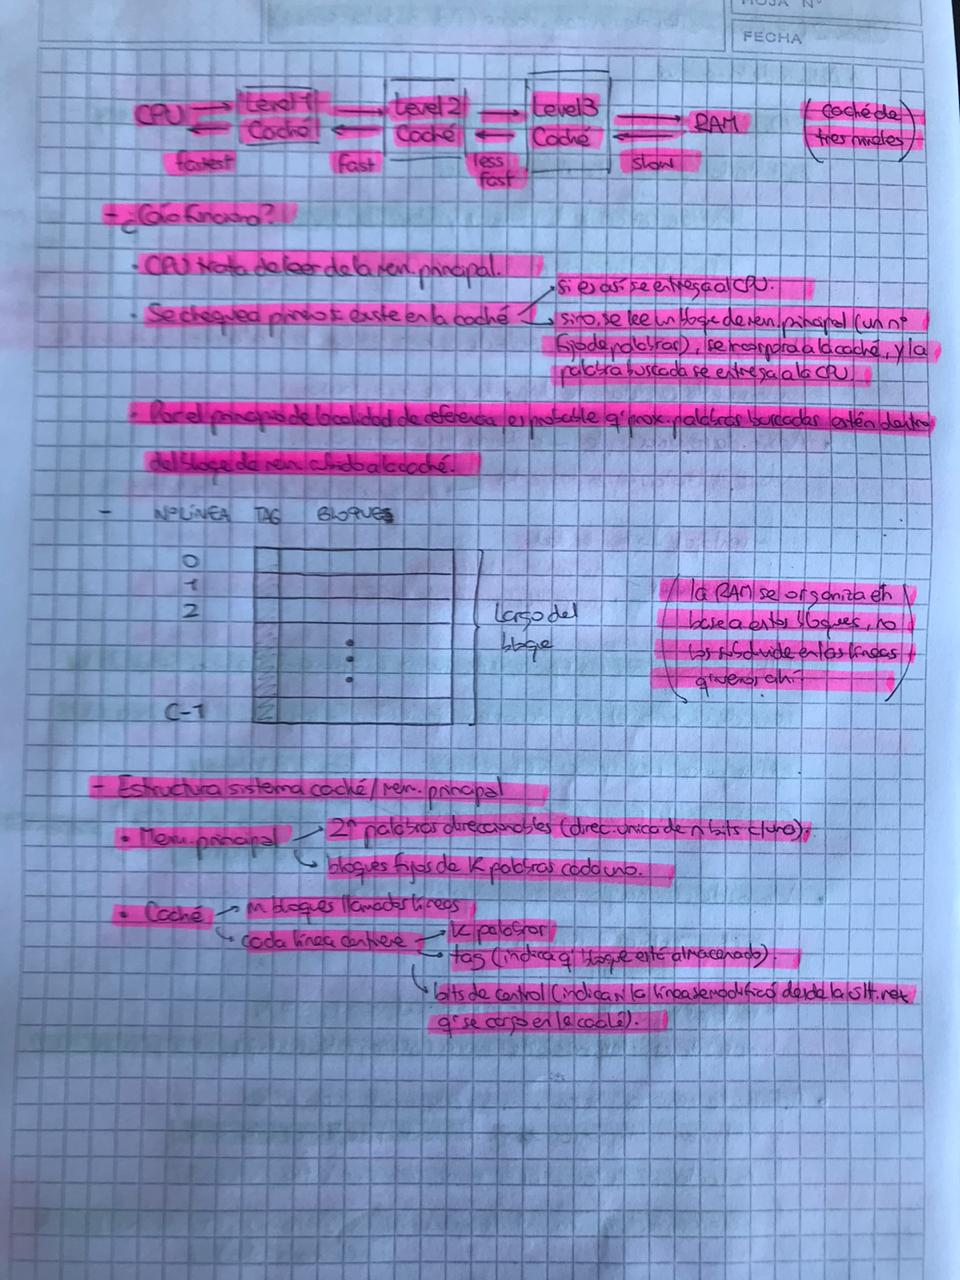 HOJA Nº
FECHA
CPU Level 1 Level 2 Level 3 RAM (caché de
Caché Caché Caché tres niveles)
fastest fast less slow
fast
- ¿Cómo funciona?
• CPU trata de leer de la mem. principal.
si es así se entrega al CPU.
• Se chequea primero si existe en la caché
sino, se lee un bloque de mem. principal (un nº
fijo de palabras), se incorpora a la caché, y la
palabra buscada se entrega a la CPU
• Por el principio de localidad de referencia es probable q' prox. palabras buscadas estén dentro
del bloque de mem. subido a la caché.
- Nº LÍNEA TAG BLOQUES
0
1
2
Largo del
bloque
C-1
(la RAM se organiza en
base a estos bloques, no
los subdivide en las líneas
q' vemos ahí)
- Estructura sistema caché/mem. principal
• Mem. principal 2ⁿ palabras direccionables (direc. única de n bits c/una).
bloques fijos de K palabras cada uno.
• Caché m bloques llamados líneas
cada línea contiene K palabras
tag (indica q' bloque está almacenado).
bits de control (indican si la línea se modificó desde la últ. vez
q' se cargó en la caché).